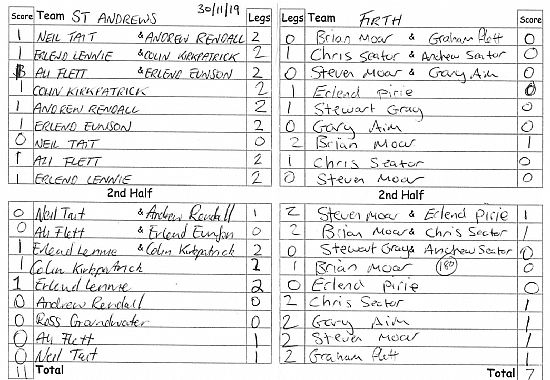 Score Team ST ANDREWS 30/11/19 Legs Legs Team FIRTH Score
1 NEIL TAIT & ANDREW RENDALL 2 0 Brian Moar & Graham Flett 0
1 ERLEND LENNIE & COLIN KIRKPATRICK 2 1 Chris Seator & Andrew Seator 0
ALI FLETT & ERLEND EUNSON 2 0 Steven Moar & Gary Aim 0
1 COLIN KIRKPATRICK 2 1 Erlend Pirie 0
1 ANDREW RENDALL 2 1 Stewart Gray 0
1 ERLEND EUNSON 2 0 Gary Aim 0
0 NEIL TAIT 0 2 Brian Moar 1
1 ALI FLETT 2 1 Chris Seator 0
1 ERLEND LENNIE 2 0 Steven Moar 0
2nd Half 2nd Half
0 Neil Tait & Andrew Rendall 1 2 Steven Moar & Erlend Pirie 1
0 Ali Flett & Erlend Eunson 0 2 Brian Moar & Chris Seator 1
1 Erlend Lennie & Colin Kirkpatrick 2 0 Stewart Gray & Andrew Seator 0
1 Colin Kirkpatrick 2 1 Brian Moar 180 0
1 Erlend Lennie 2 0 Erlend Pirie 0
0 Andrew Rendall 0 2 Chris Seator 1
0 Ross Groundwater 0 2 Gary Aim 1
0 Ali Flett 1 2 Steven Moar 1
0 Neil Tait 1 2 Graham Flett 1
11 Total Total 7